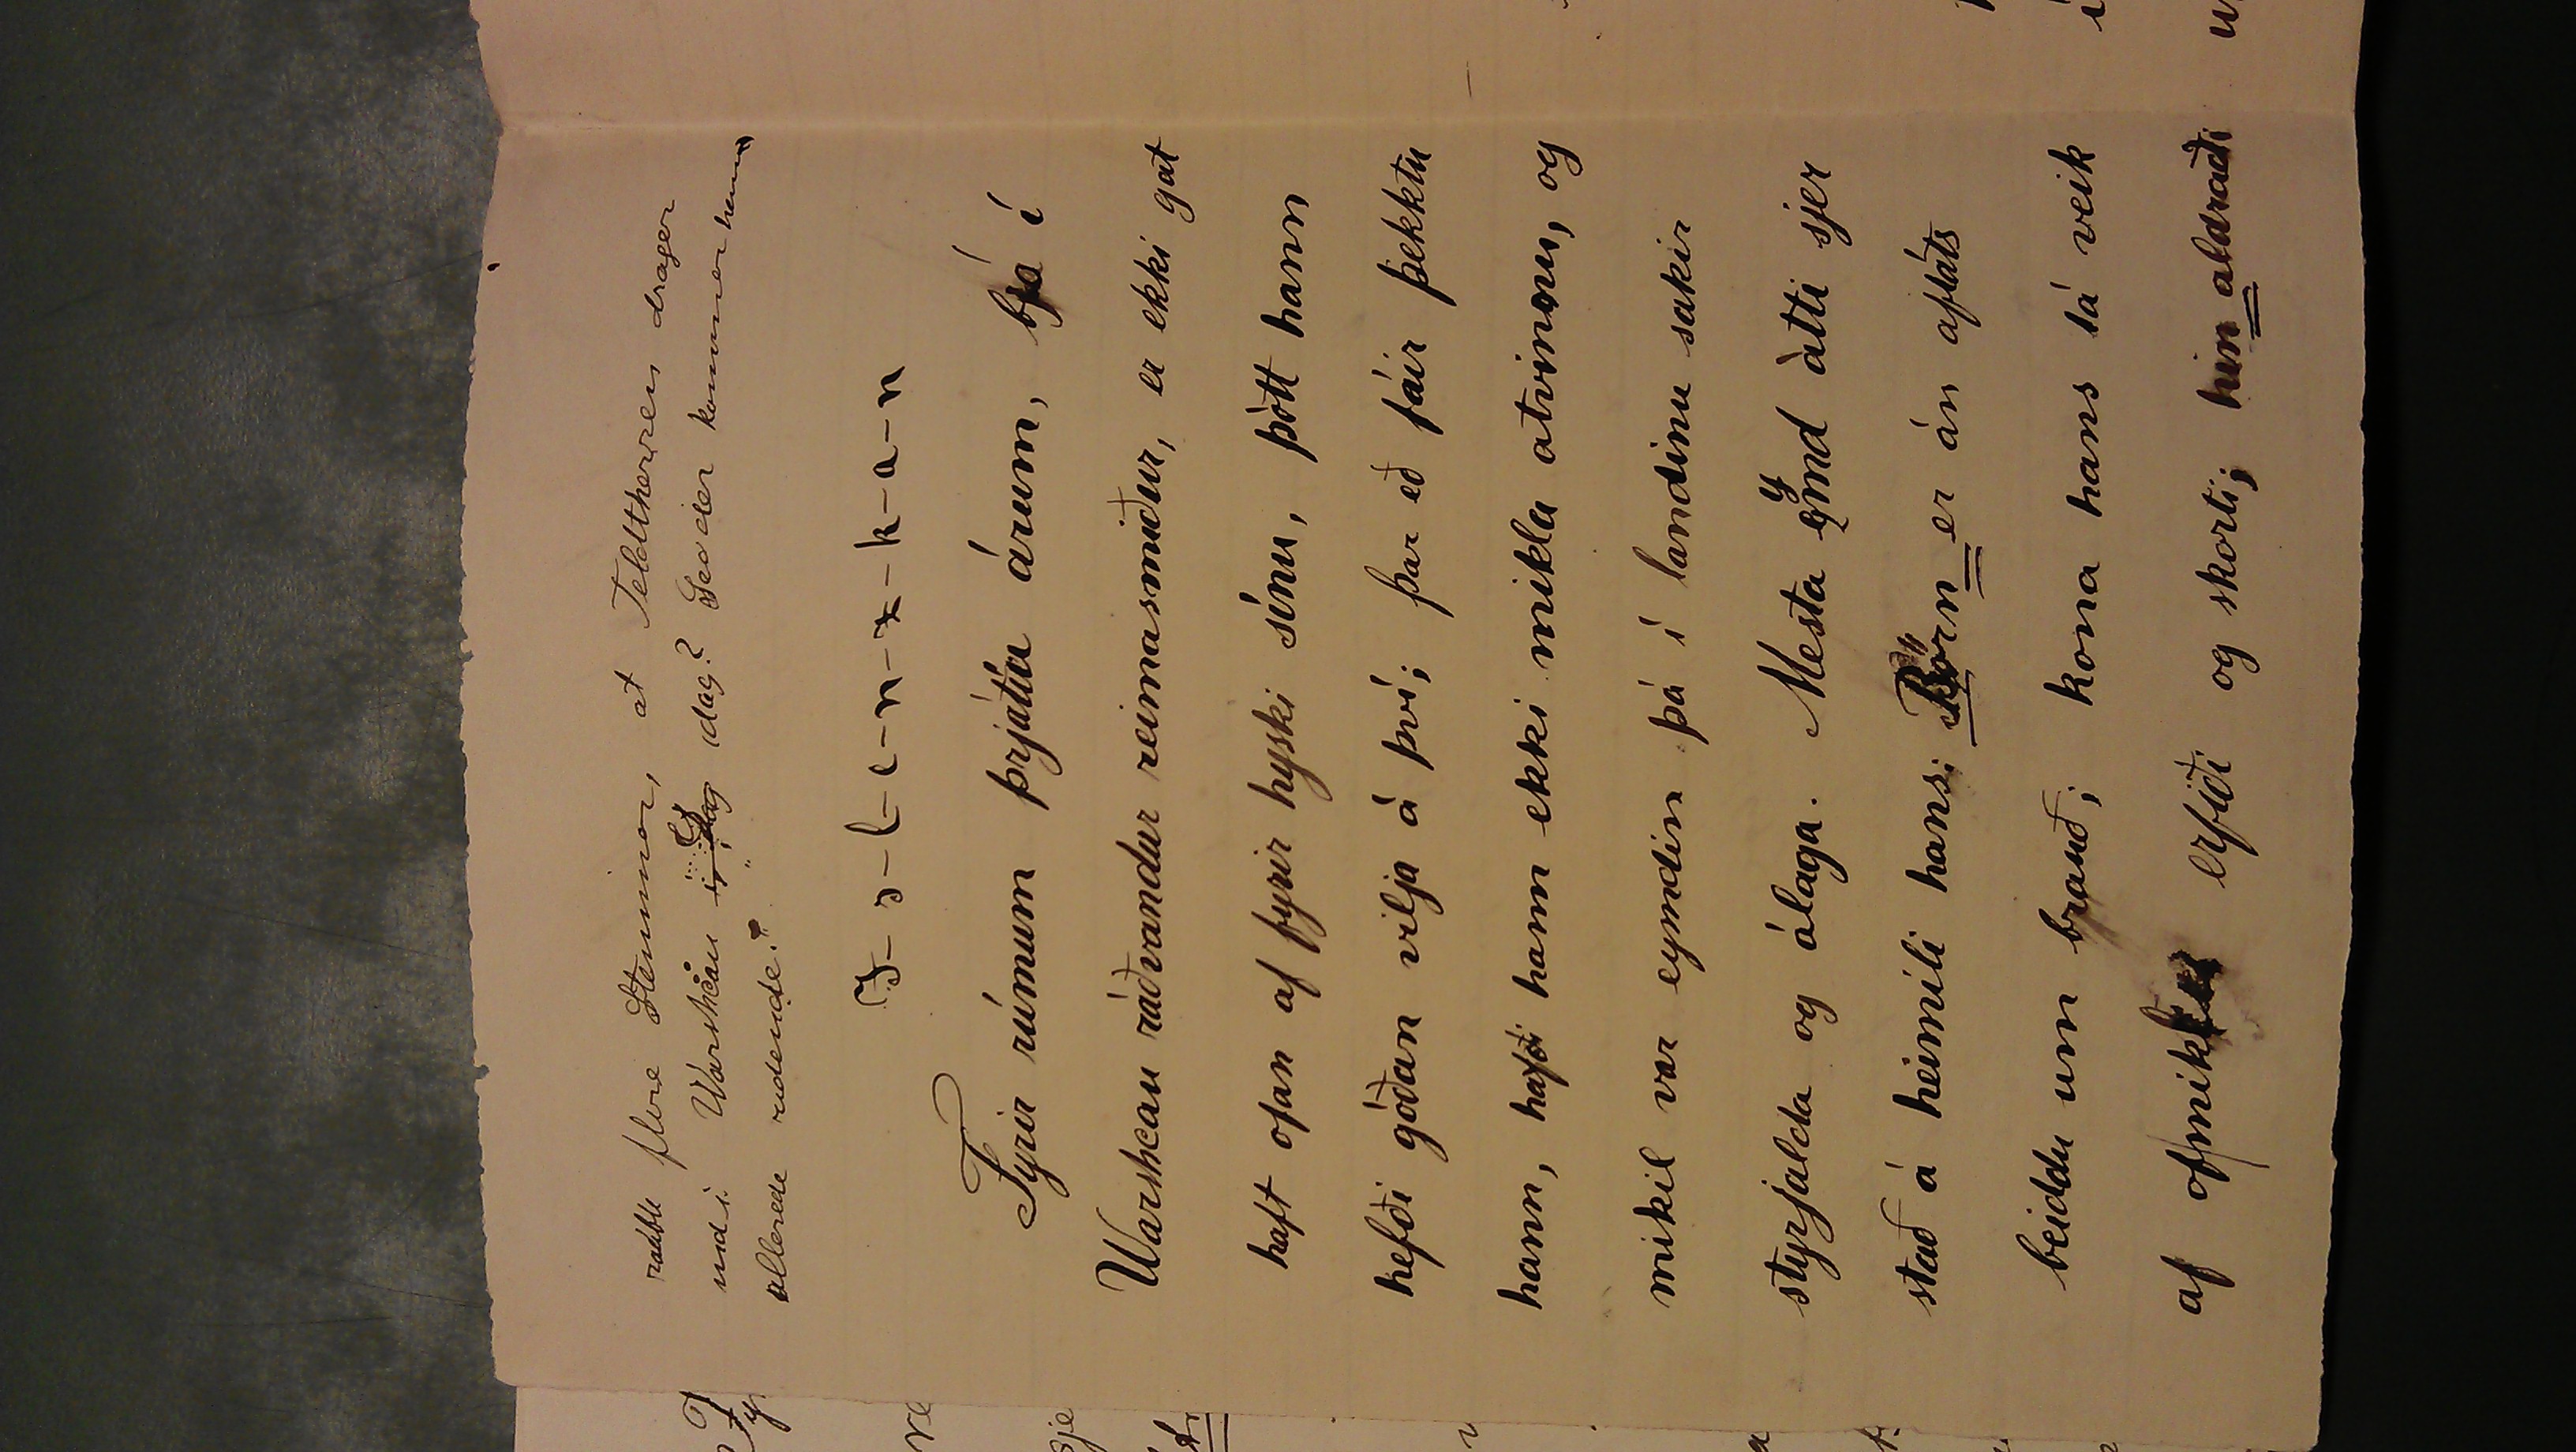 raabte flere Stemmer, at Feldtherren drager
ind i Warschau i Dag idag? Seeder kommer hem
allerede ridende."
I-s-l-e-n-z-k-a-n
Fyrir rúmum þrjátíu árum, bjó í
Warshcau ráðvandur reimasmiður, er ekki gat
haft ofan af fyrir hyski sínu, þótt hann
hefði góðan vilja á því; þar eð fáir þekktu
hann, hafði hann ekki mikla atvinnu, og
mikil var eymdin þá í landinu sakir
styrjalda og álaga. Mesta eymd átti sjer
stað á heimili hans; Börn er án afláts
beiddu um brauð; kona hans lá veik
af ofmiklu erfiði og skorti; hin aldraði